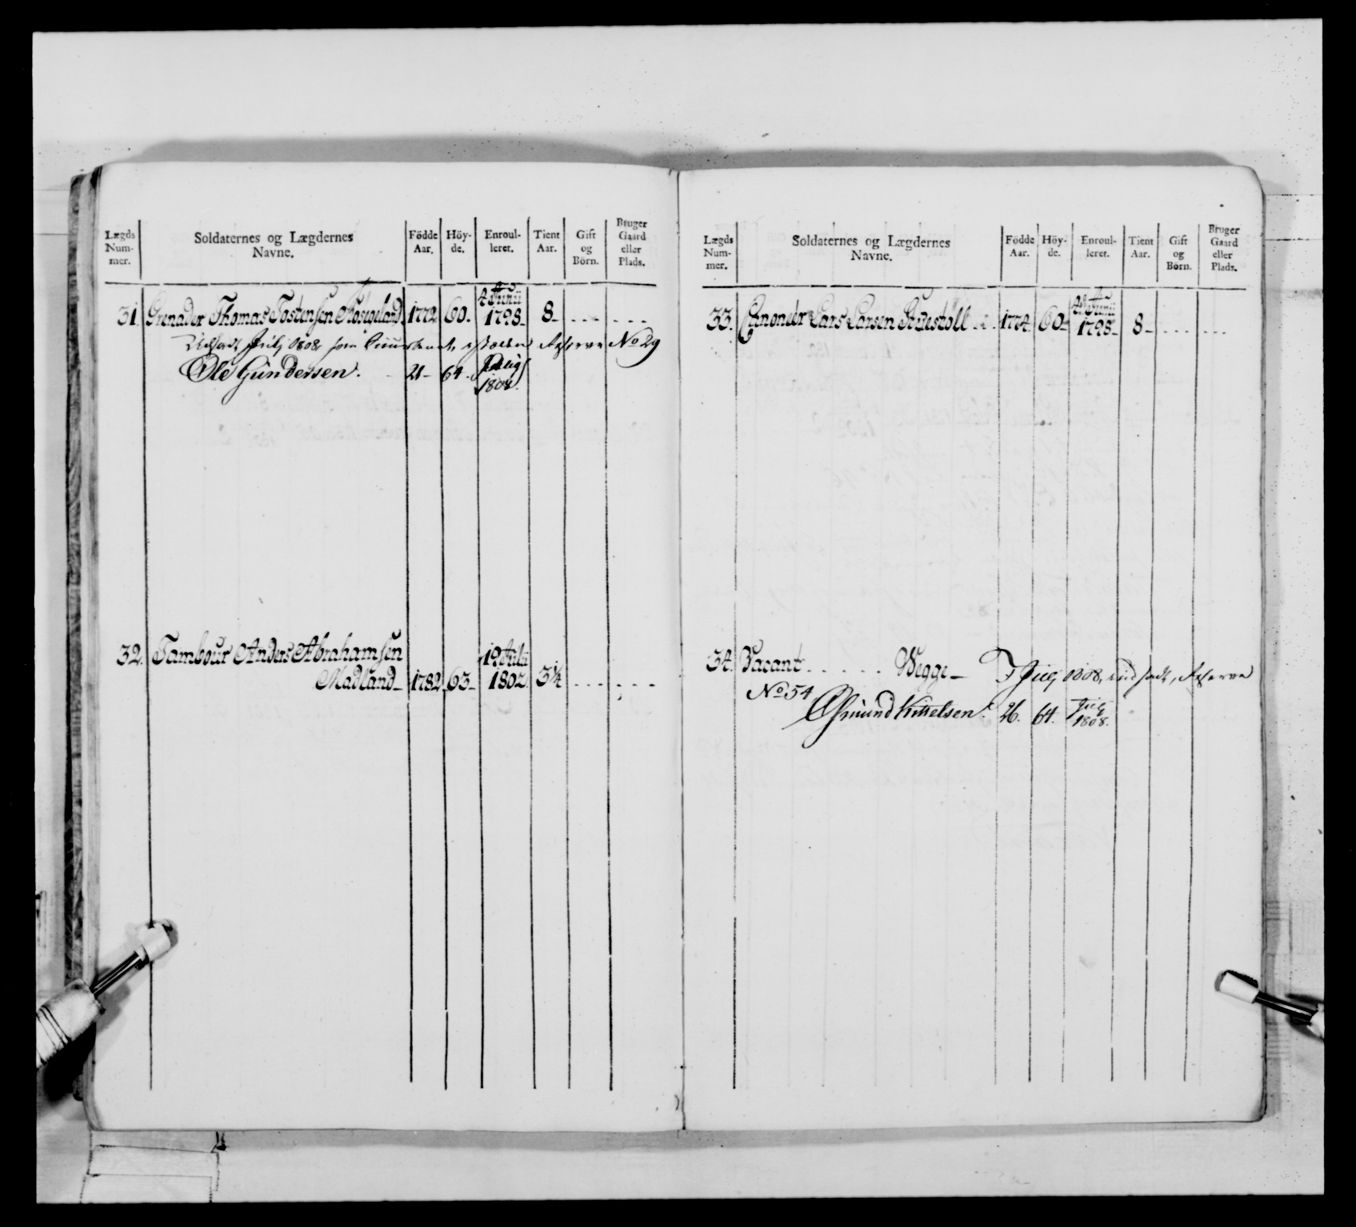 Lægds Num- mer.
Soldaternes og Lægdernes Navne.
Födde Aar.
Höy- de.
Enroul- leret.
Tient Aar.
Gift og Börn.
Bruger Gaard eller Plads.
31. Grenader Thomas Tostensen 1772 60. 1798 8
1808 som Reserve No 29
Ole Gundersen. 21 64 1808.
32. Tambour Anders Abrahamsen
Madland 1782 63 1802 3¼
Lægds Num- mer.
Soldaternes og Lægdernes Navne.
Födde Aar.
Höy- de.
Enroul- leret.
Tient Aar.
Gift og Börn.
Bruger Gaard eller Plads.
33. Canoneer Lars Larsen 1774 60 1798 8
34. Vacant Wegge 1808 indsadt, Reserve
No 54
Osmund Kittelsen. 26. 64. 1808.